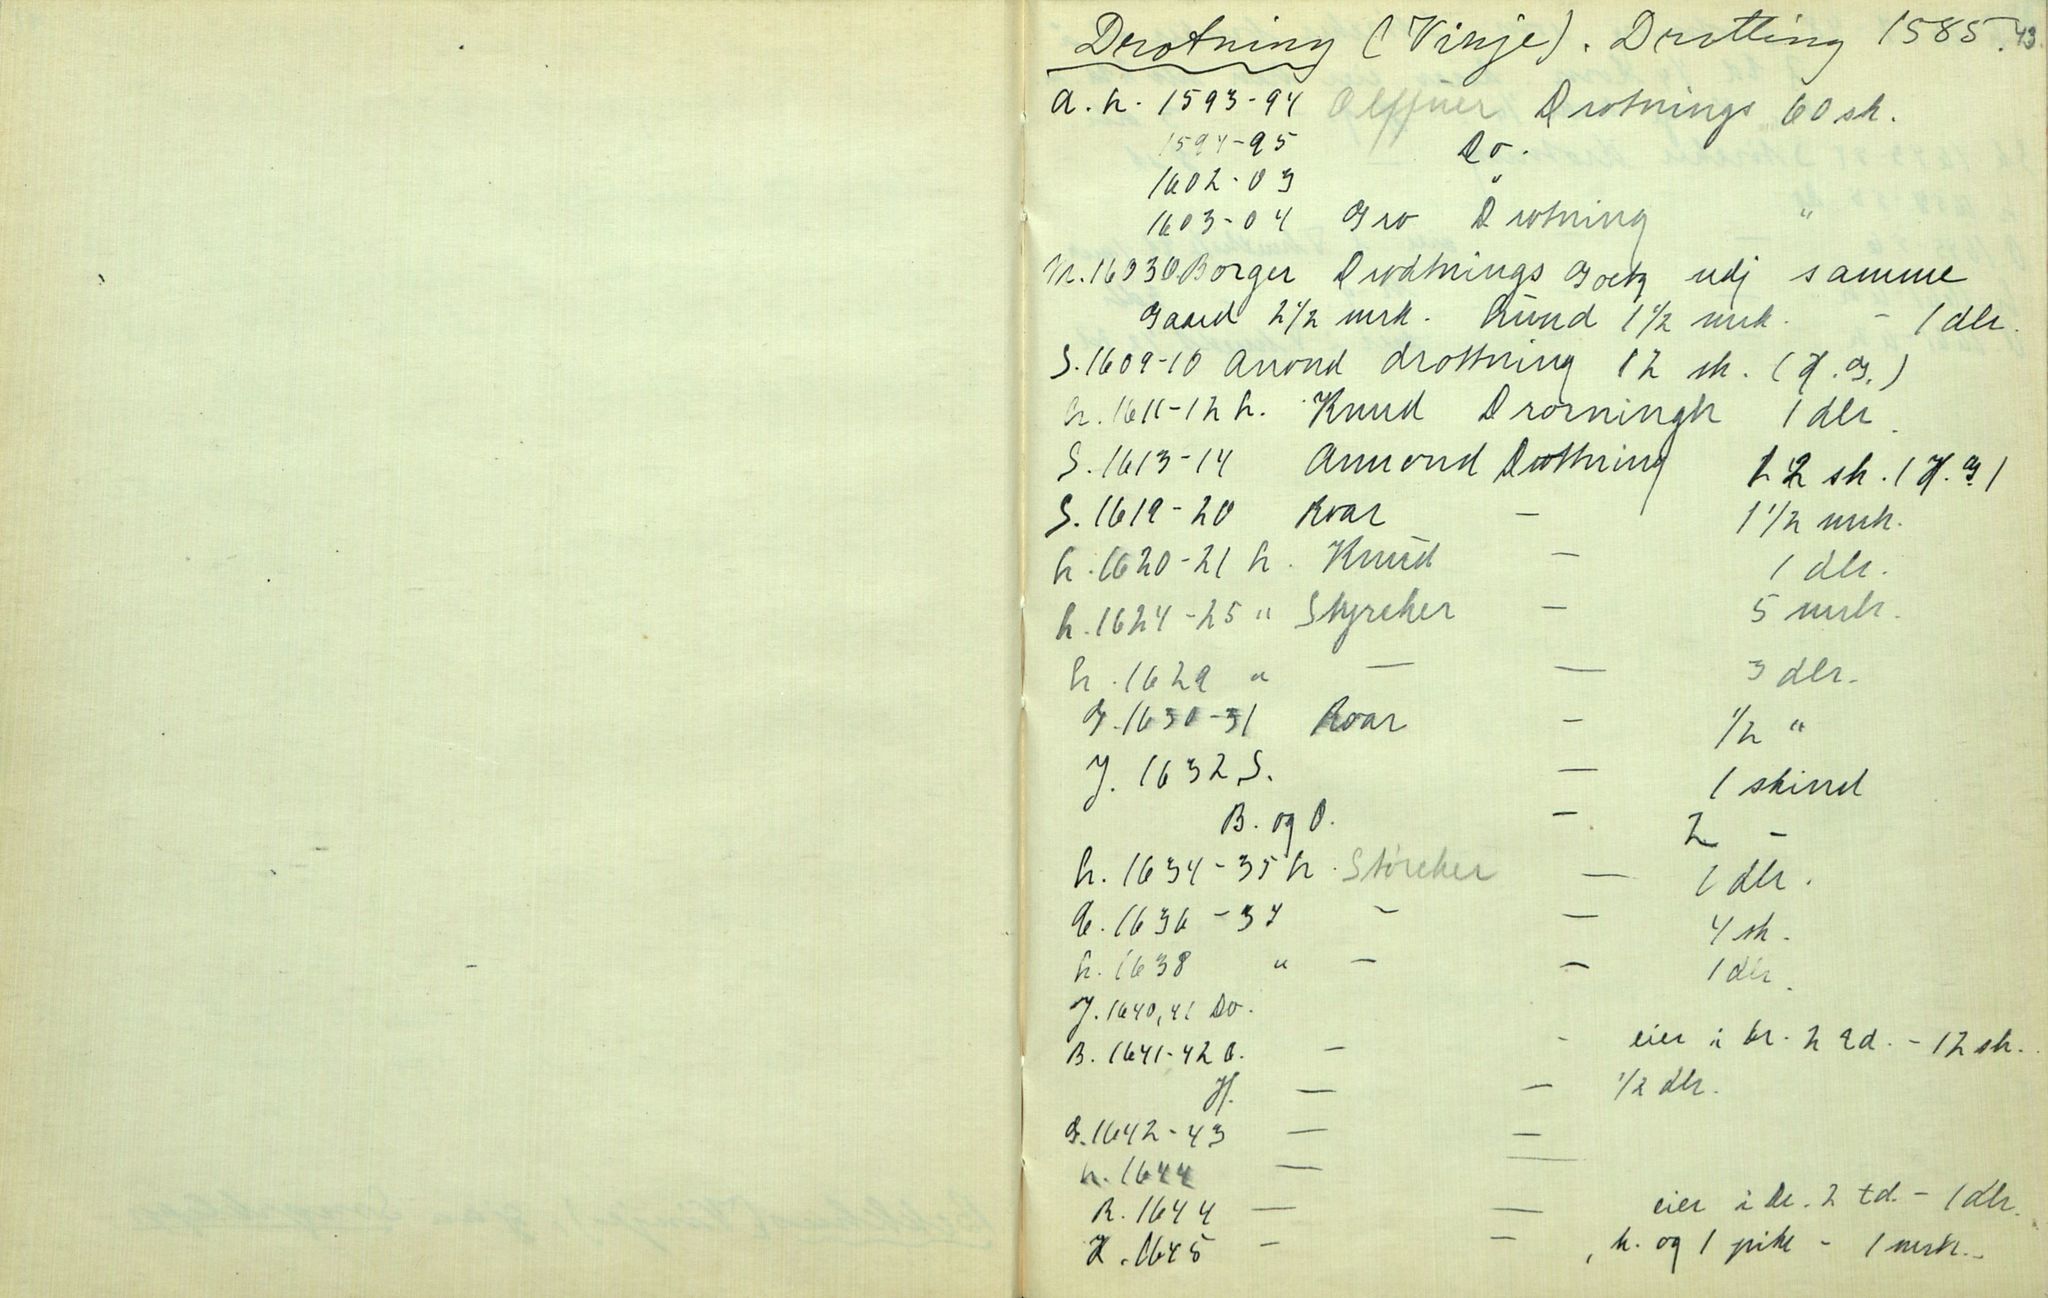 Drotning (Vinje). Drotting 1585. 43.
a. h. 1593-94 Olffuer Drotnings 60 sk.
1594-95 Do.
1602-03 "
1603-04 Gro Drotning "
1603 Borger Drodtnings Goetz udj samme
Gaard 2 1/2 mrk. Rund 1 1/2 mrk. - 1 dlr.
S. 1609-10 Anond drottning 12 sk. (H.G.)
h. 1611-12 h. Knud Drorningh 1 dlr.
S. 1613-14 Annond Drottning 12 sk. (H.G)
S. 1619-20 Roar - 1 1/2 mrk.
h. 1620-21 h. Knud - 1 dlr.
h. 1624-25 " Styrcker - 5 mrk.
h. 1629 " - - 3 dlr.
G. 1630-31 Roar - 1/2 "
J. 1632 S. - 1 skind
B. og O. - 2 -
h. 1634-35 h. Störcker - 1 dlr.
1636-37 - - 4 sk.
h. 1638 " - - 1 dlr.
J. 1640, 41 Do.
B. 1641-42 O. - - eier i br. 2 qd. - 12 sk.
H. - - 1/2 dlr.
G. 1642-43 - -
h. 1644 - -
R. 1644 - - eier i Dr. 2 td. - 1 dlr.
K. 1645 - - , k. og 1 pike - 1 mrk.